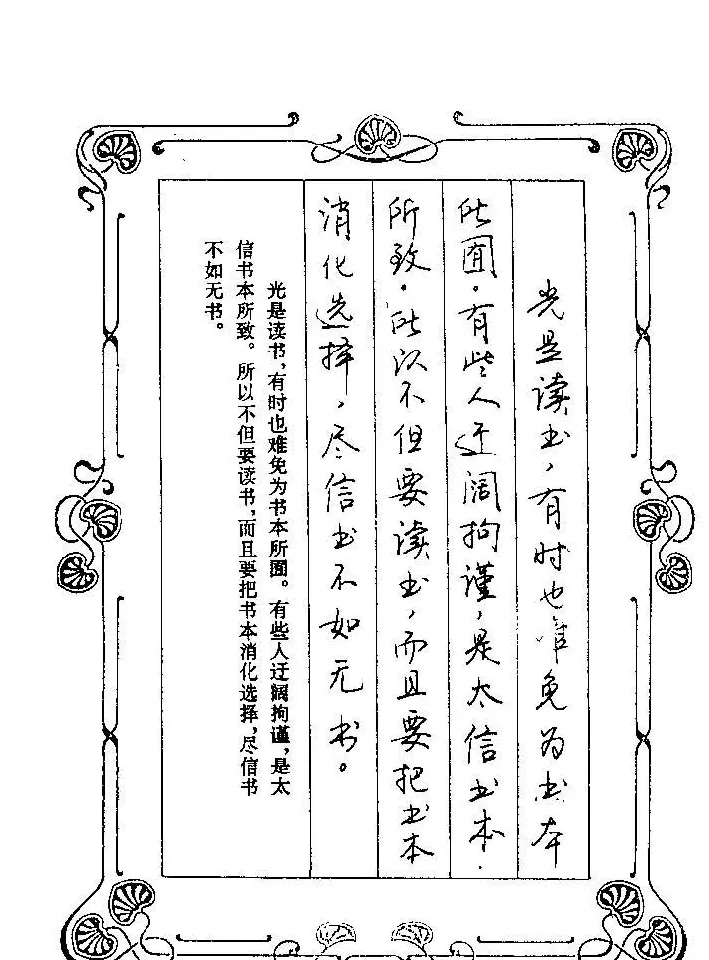 光是读书，有时也难免为书本
所囿。有些人迂阔拘谨，是太信书本.
所致.所以不但要读书，而且要把书本
消化选择，尽信书不如无书。
光是读书，有时也难免为书本所囿。有些人迂阔拘谨，是太
信书本所致。所以不但要读书，而且要把书本消化选择，尽信书
不如无书。